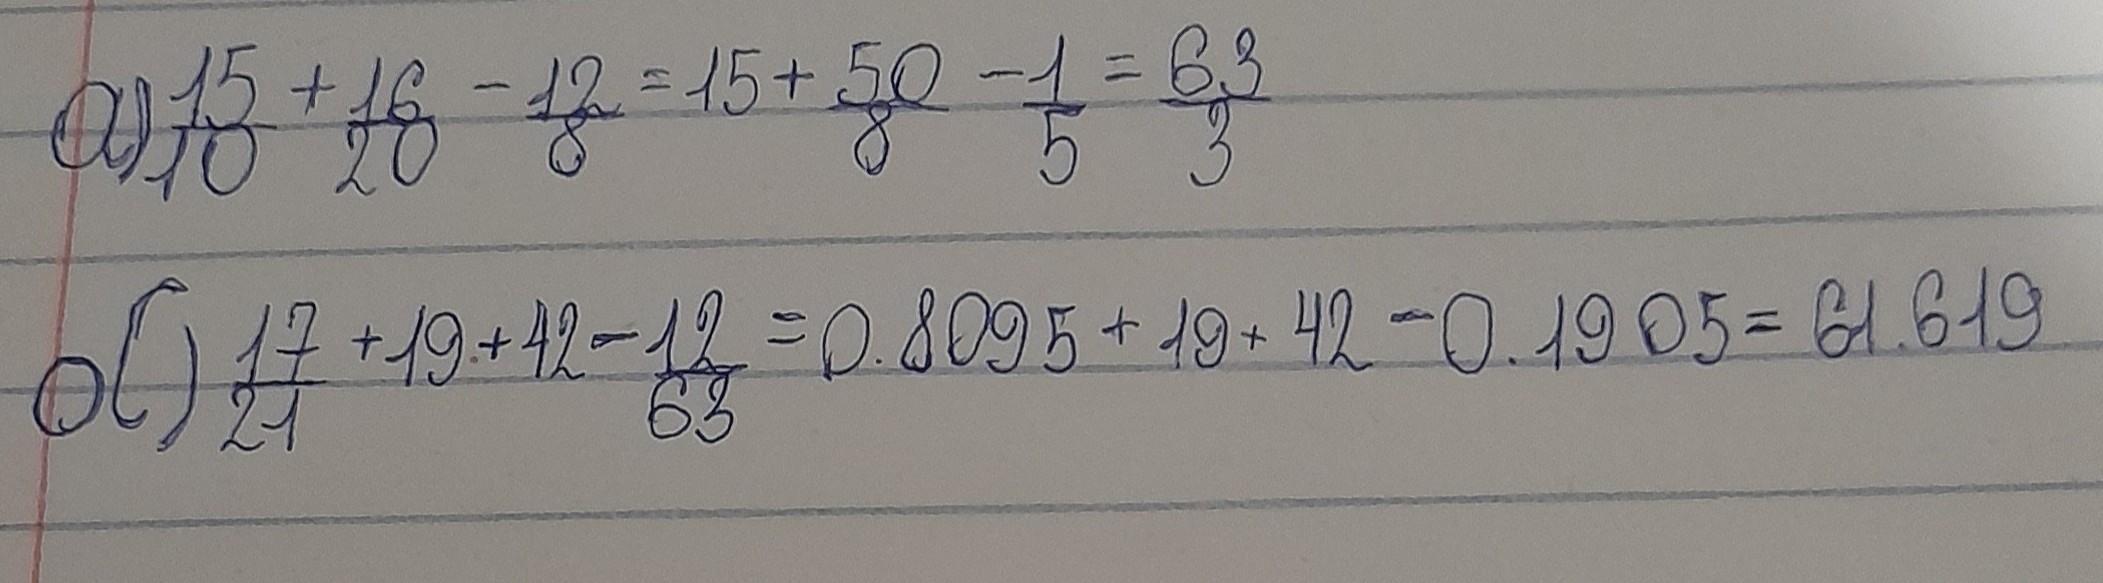 a) 15/10 + 16/20 - 12/8 = 15 + 50/8 - 1/5 = 63/3
б) 17/21 + 19 + 42 - 12/63 = 0.8095 + 19 + 42 - 0.1905 = 61.619